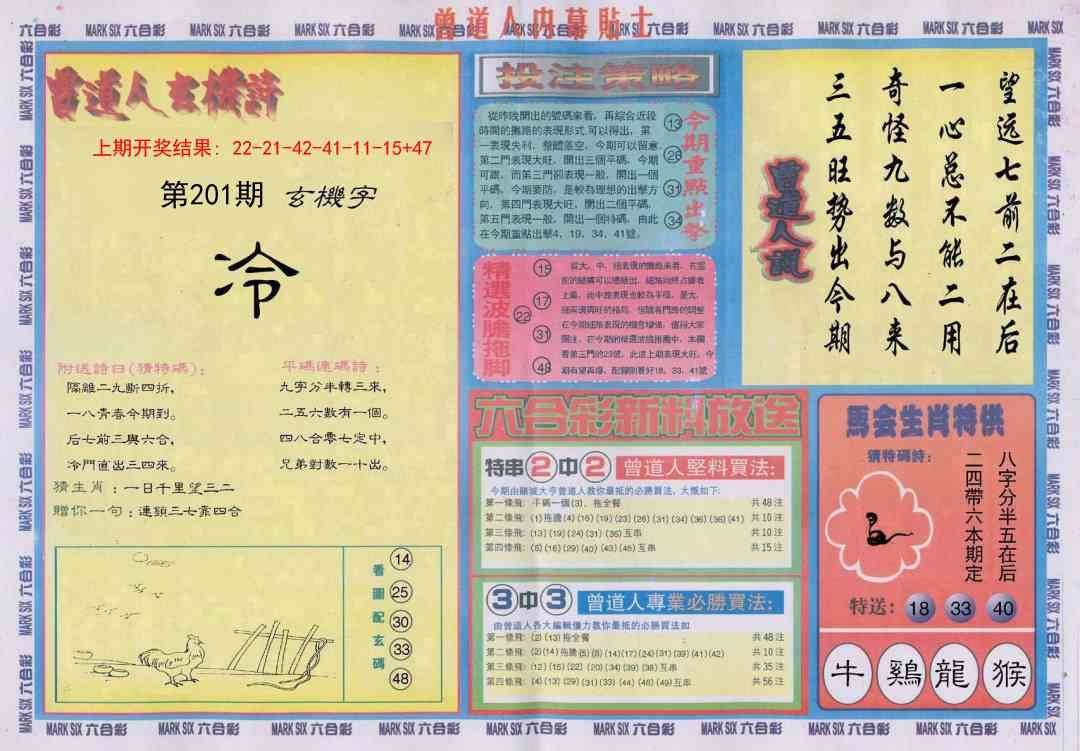 曾道人内幕貼士
MARK SIX 六合彩
曾道人玄機詩
上期开奖结果: 22-21-42-41-11-15+47
第201期 玄機字
冷
附送詩日(猜特碼):
隔離二九斷四折,
一八青春今期到。
后七前三與六合,
冷門直出三四來。
平碼連碼詩:
九字分半轉三來,
二五六數有一個。
四八合零七定中,
兄弟對數一十出。
猜生肖:一日千里望三二
贈你一句:連頭三七靠四合
看圖配玄碼
14
25
30
33
48
投注策略
從昨晚開出的號碼來看,再綜合近段
時間的攤路的表現形式,可以得出,第
一表現失利,整體落空,今期可以留意,
第二門表現大旺,開出三個平碼,今期
可跟,而第三門卻表現一般,開出一個
平碼,今期要防,是較為理想的出擊方
向,第四門表現大旺,開出二個平碼,
第五門表現一般,開出一個特碼,由此
在今期重點出擊4、19、34、41號。
13
26
31
34
今期重點出擊
精選波膽拖脚
17
22
31
48
六合彩新料放送
特串2中2 曾道人堅料買法:
今期由賭城大亨曾道人教你最抵的必勝買法,大概如下:
第一條飛: 平碼一個(3), 拖全餐 共48注
第二條飛: (1)拖膽(4)(16)(19)(23)(26)(31)(34)(36)(38)(41) 共10注
第三條飛: (13)(19)(24)(31)(35)互串 共10注
第四條飛: (5)(16)(29)(40)(43)(45)互串 共15注
3中3 曾道人專業必勝買法:
由曾道人各大編輯傾力教你最抵的必勝買法如
第一條飛: (2)(13)拖全餐 共48注
第二條飛: (2)(14)拖膽(5)(8)(14)(17)(24)(31)(39)(41)(42) 共10注
第三條飛: (12)(15)(22)(20)(34)(39)(38)互串 共35注
第四條飛: (4)(13)(29)(31)(33)(44)(48)(49)互串 共56注
曾道人說
望远七前二在后
一心总不能二用
奇怪九数与八来
三五旺势出今期
馬会生肖特供
猜特碼詩:
八字分半五在后
二四帶六本期定
特送: 18 33 40
牛 鷄 龍 猴